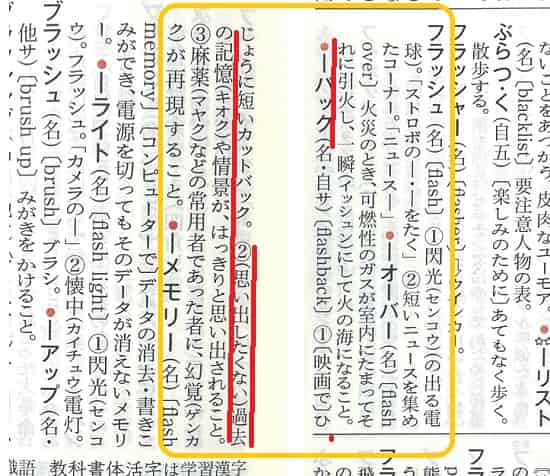 皮肉なユーモア。☆●―リスト
(名)〔blacklist〕要注意人物の表。
ぶらつ・く(自五)〔楽しみのために〕あてもなく歩く。
散歩する。
フラッシャー(名)〔flasher〕→ウインカー。
フラッシュ(名)〔flash〕①閃光(センコウ)(の出る電
球)。「ストロボの―・―をたく」②短いニュースを集め
たコーナー。「ニュース―」●―オーバー(名)〔flash
over〕火災のとき、可燃性のガスが室内にたまってそ
れに引火し、一瞬(イッシュン)にして火の海になること。
●―バック(名・自サ)〔flashback〕①〔映画で〕ひ
じょうに短いカットバック。②(思い出したくない)過去
の記憶(キオク)や情景が、はっきりと思い出されること。
③麻薬(マヤク)などの常用者であった者に、幻覚(ゲンカ
ク)が再現すること。●―メモリー(名)〔flash
memory〕〔コンピューターで〕データの消去・書きこ
みができ、電源を切ってもそのデータが消えないメモリ
ー。●―ライト(名)〔flash light〕①閃光(センコ
ウ)。フラッシュ。「カメラの―」②懐中(カイチュウ)電灯。
ブラッシュ(名)〔brush〕ブラシ。●―アップ(名・
他サ)〔brush up〕みがきをかけること。
識語 教科書体活字は学習漢字